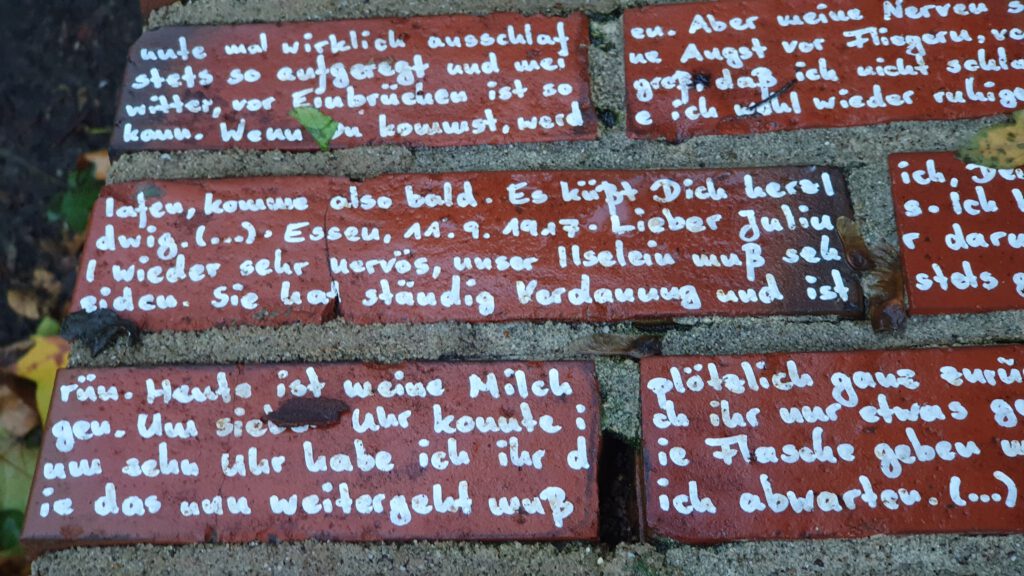 nnte mal wirklich ausschlaf en. Aber meine Nerven s
stets so aufgeregt und mei ne Angst vor Fliegern, vo
witter, vor Einbrüchen ist so groß, daß ich nicht schla
kann. Wenn Du kommst, werd e ich wohl wieder ruhige
lafen, komme also bald. Es küßt Dich herzl ich, Dei
dwig. (...). Essen, 11.9.1917. Lieber Juliu s. ich
l wieder sehr nervös, unser Ilselein muß seh r daru
eiden. Sie hat ständig Verdauung und ist stets g
rün. Heute ist meine Milch plötzlich ganz zurü
gen. Um sieben Uhr konnte i ch ihr nur etwas ge
um zehn Uhr habe ich ihr d ie Flasche geben
ie das nun weitergeht muß ich abwarten. (...)